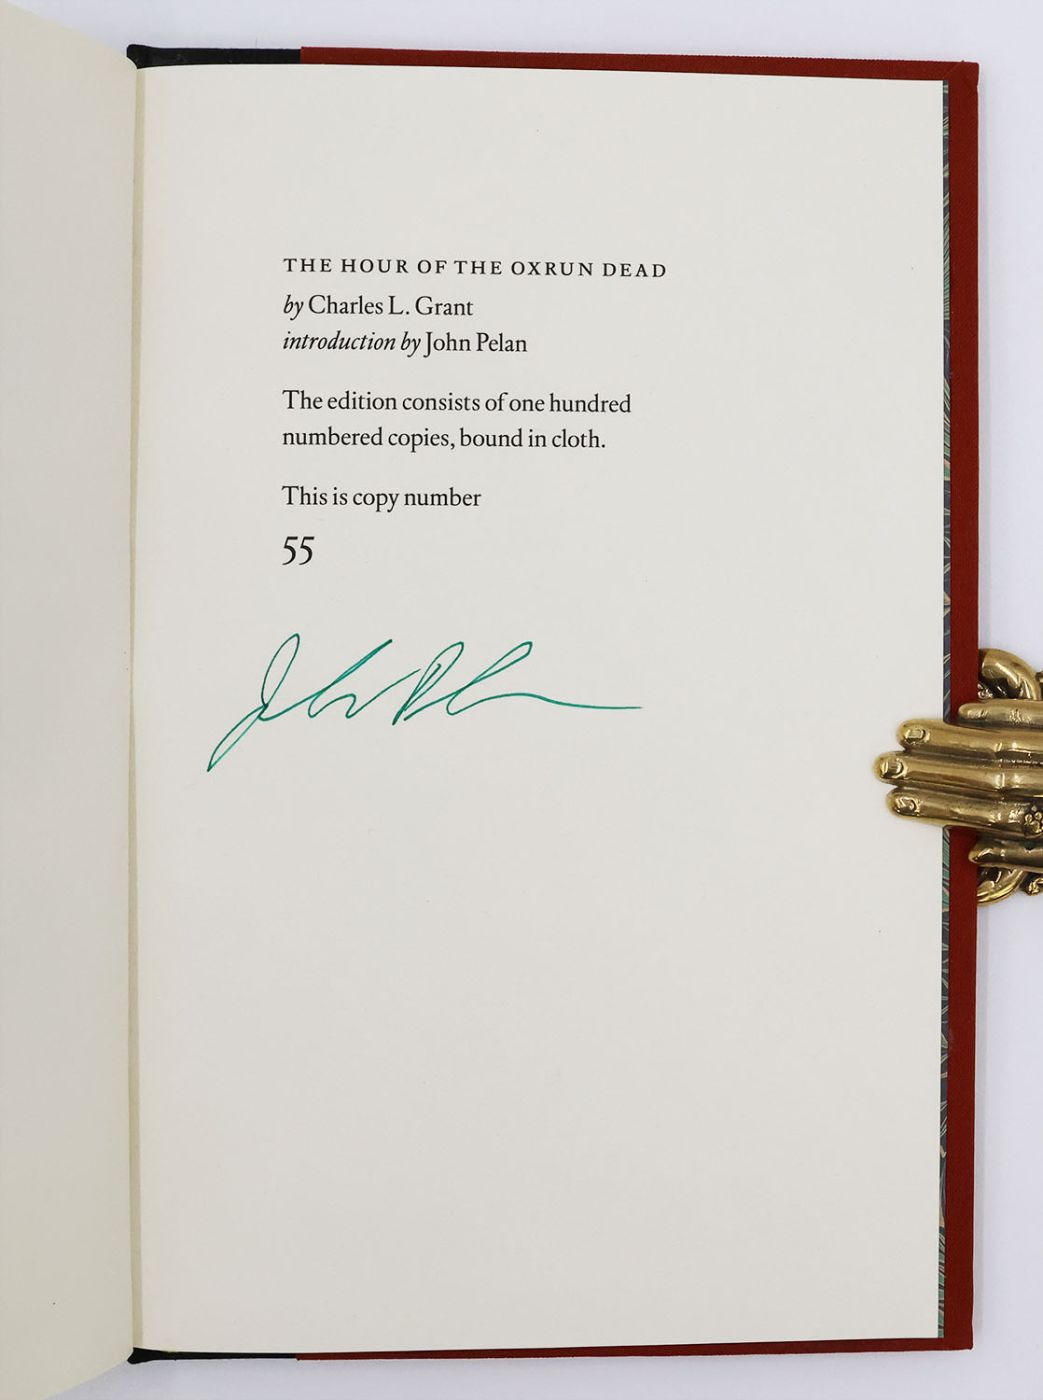 THE HOUR OF THE OXRUN DEAD
by Charles L. Grant
introduction by John Pelan
The edition consists of one hundred
numbered copies, bound in cloth.
This is copy number
55
John Pelan